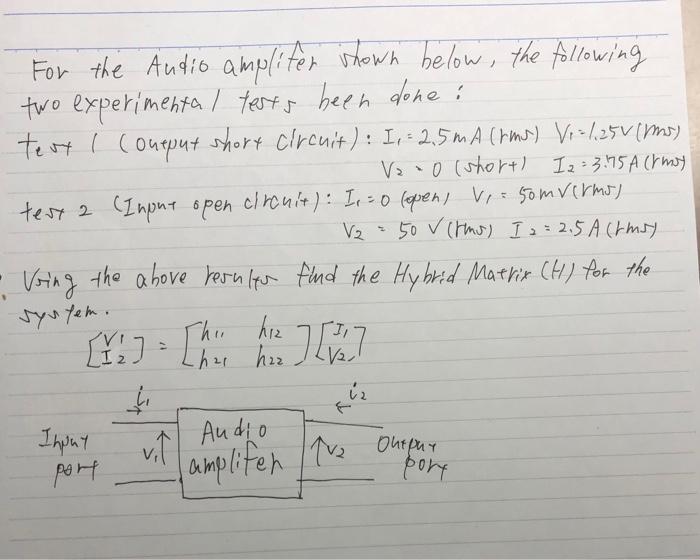 For the Audio amplifer shown below, the following
two experimental tests been done :
test 1 (output short circuit): I₁ = 2.5mA (rms) V₁ = 1.25V (rms)
V₂ = 0 (short) I₂ = 3.75A (rms)
test 2 (Input open circuit): I₁ = 0 (open) V₁ = 50mV (rms)
V₂ = 50 V (rms) I₂ = 2.5 A (rms)
Using the above results find the Hybrid Matrix (H) for the
system.
[V₁ I₂] = [h₁₁ h₁₂ h₂₁ h₂₂] [I₁ V₂]
i₁ i₂
Input port V₁ ↑ Audio amplifer ↑ V₂ Output port